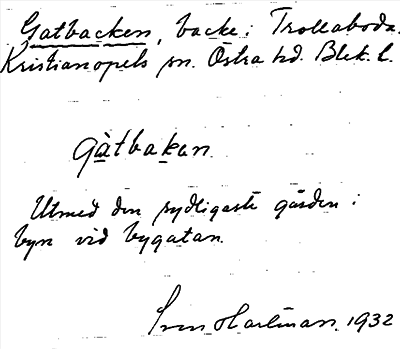 Gatbacken, backe i Trollaboda.
Kristianopels sn. Östra hd. Blek. l.
gàtbakan
Utmed den sydligaste gården i
byn vid bygatan.
Sven Hartman. 1932